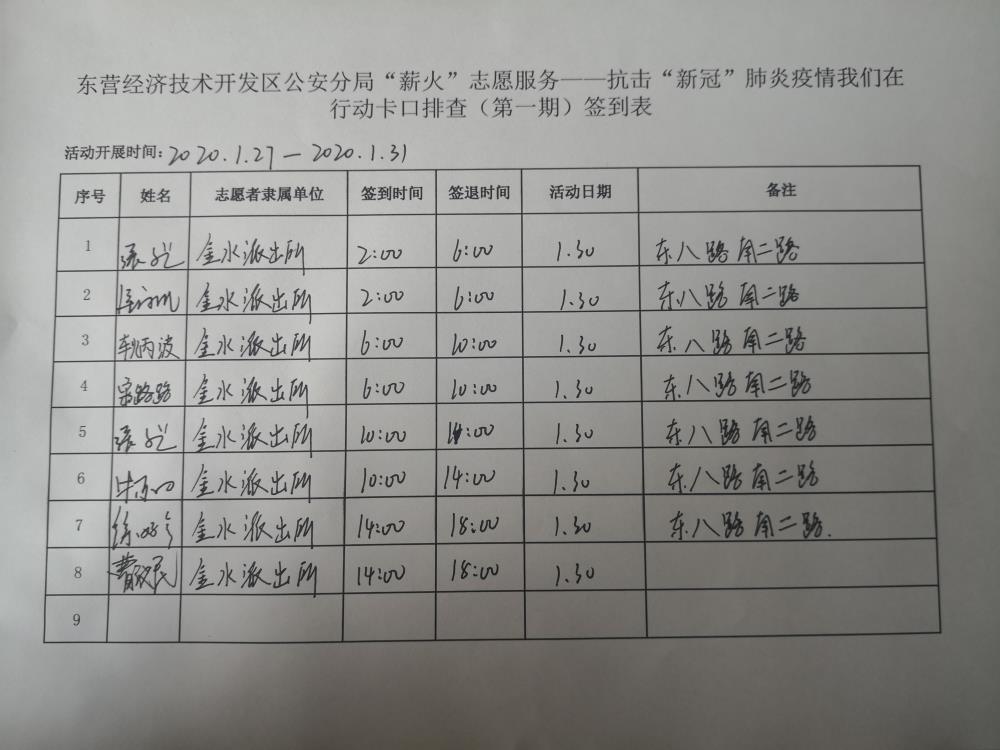 东营经济技术开发区公安分局“薪火”志愿服务——抗击“新冠”肺炎疫情我们在
行动卡口排查（第一期）签到表
活动开展时间：2020.1.27—2020.1.31
序号 姓名 志愿者隶属单位 签到时间 签退时间 活动日期 备注
1 金水派出所 2:00 6:00 1.30 东八路南二路
2 金水派出所 2:00 6:00 1.30 东八路南二路
3 金水派出所 6:00 10:00 1.30 东八路南二路
4 宗路路 金水派出所 6:00 10:00 1.30 东八路南二路
5 金水派出所 10:00 14:00 1.30 东八路南二路
6 金水派出所 10:00 14:00 1.30 东八路南二路
7 金水派出所 14:00 18:00 1.30 东八路南二路.
8 金水派出所 14:00 18:00 1.30
9